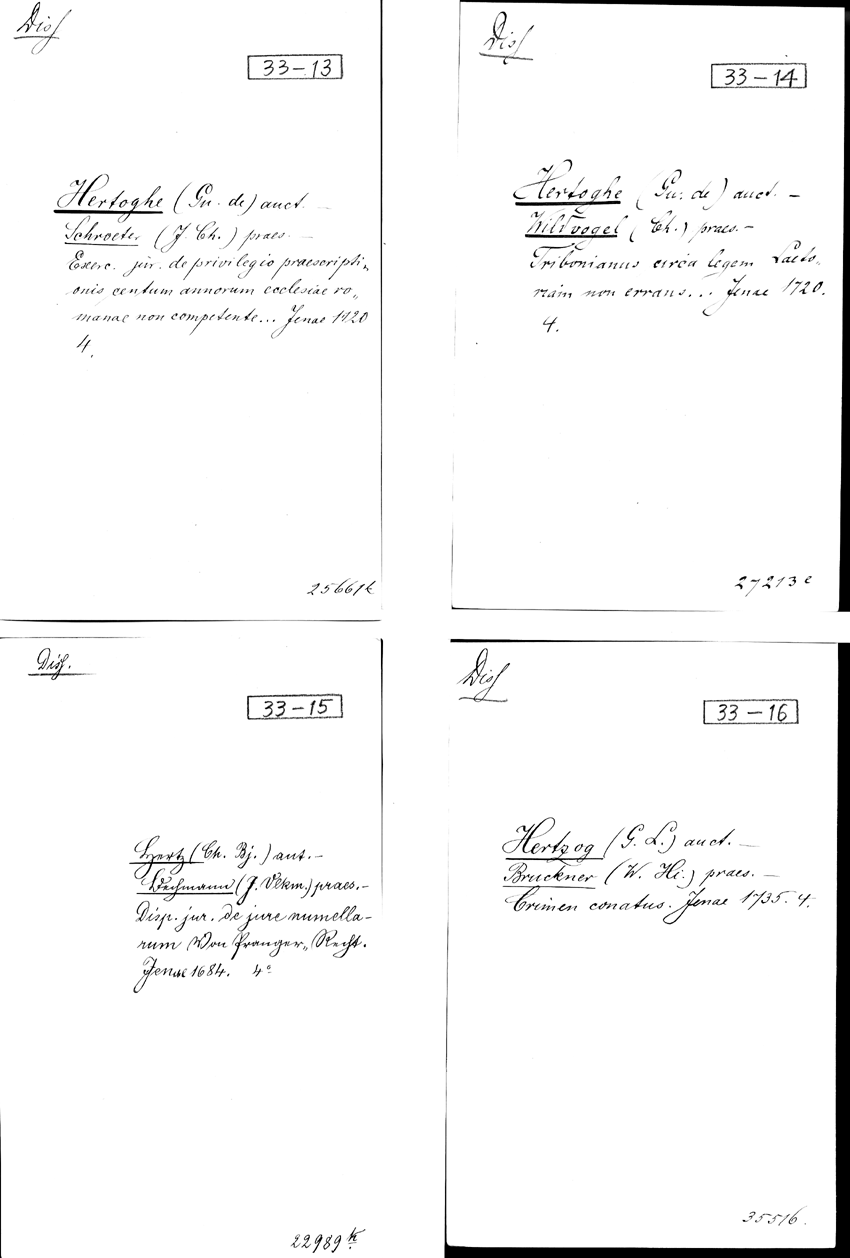 Diss
33-13
Hertoghe (Gu. de) auct. —
Schroeter (J. Ch.) praes. —
Exerc. jur. de privilegio praescripti„
onis centum annorum ecclesiae ro„
manae non competente... Jenae 1720
4.
25661k
Diss
33-14
Hertoghe (Gu. de) auct. —
Wildvogel (Ch.) praes. —
Tribonianus circa legem Laeto„
riam non errans... Jenae 1720.
4.
27213e
Diss.
33-15
Hertz (Ch. Bj.) aut. —
(J. Vlkm.) praes. —
Disp. jur. de jure numella-
rum Von Pranger„ Recht.
Jenae 1684. 4°
22989k
Diss
33-16
Hertzog (G. L.) auct. —
Bruckner (W. Hi.) praes. —
Crimen conatus. Jenae 1735. 4.
35516.